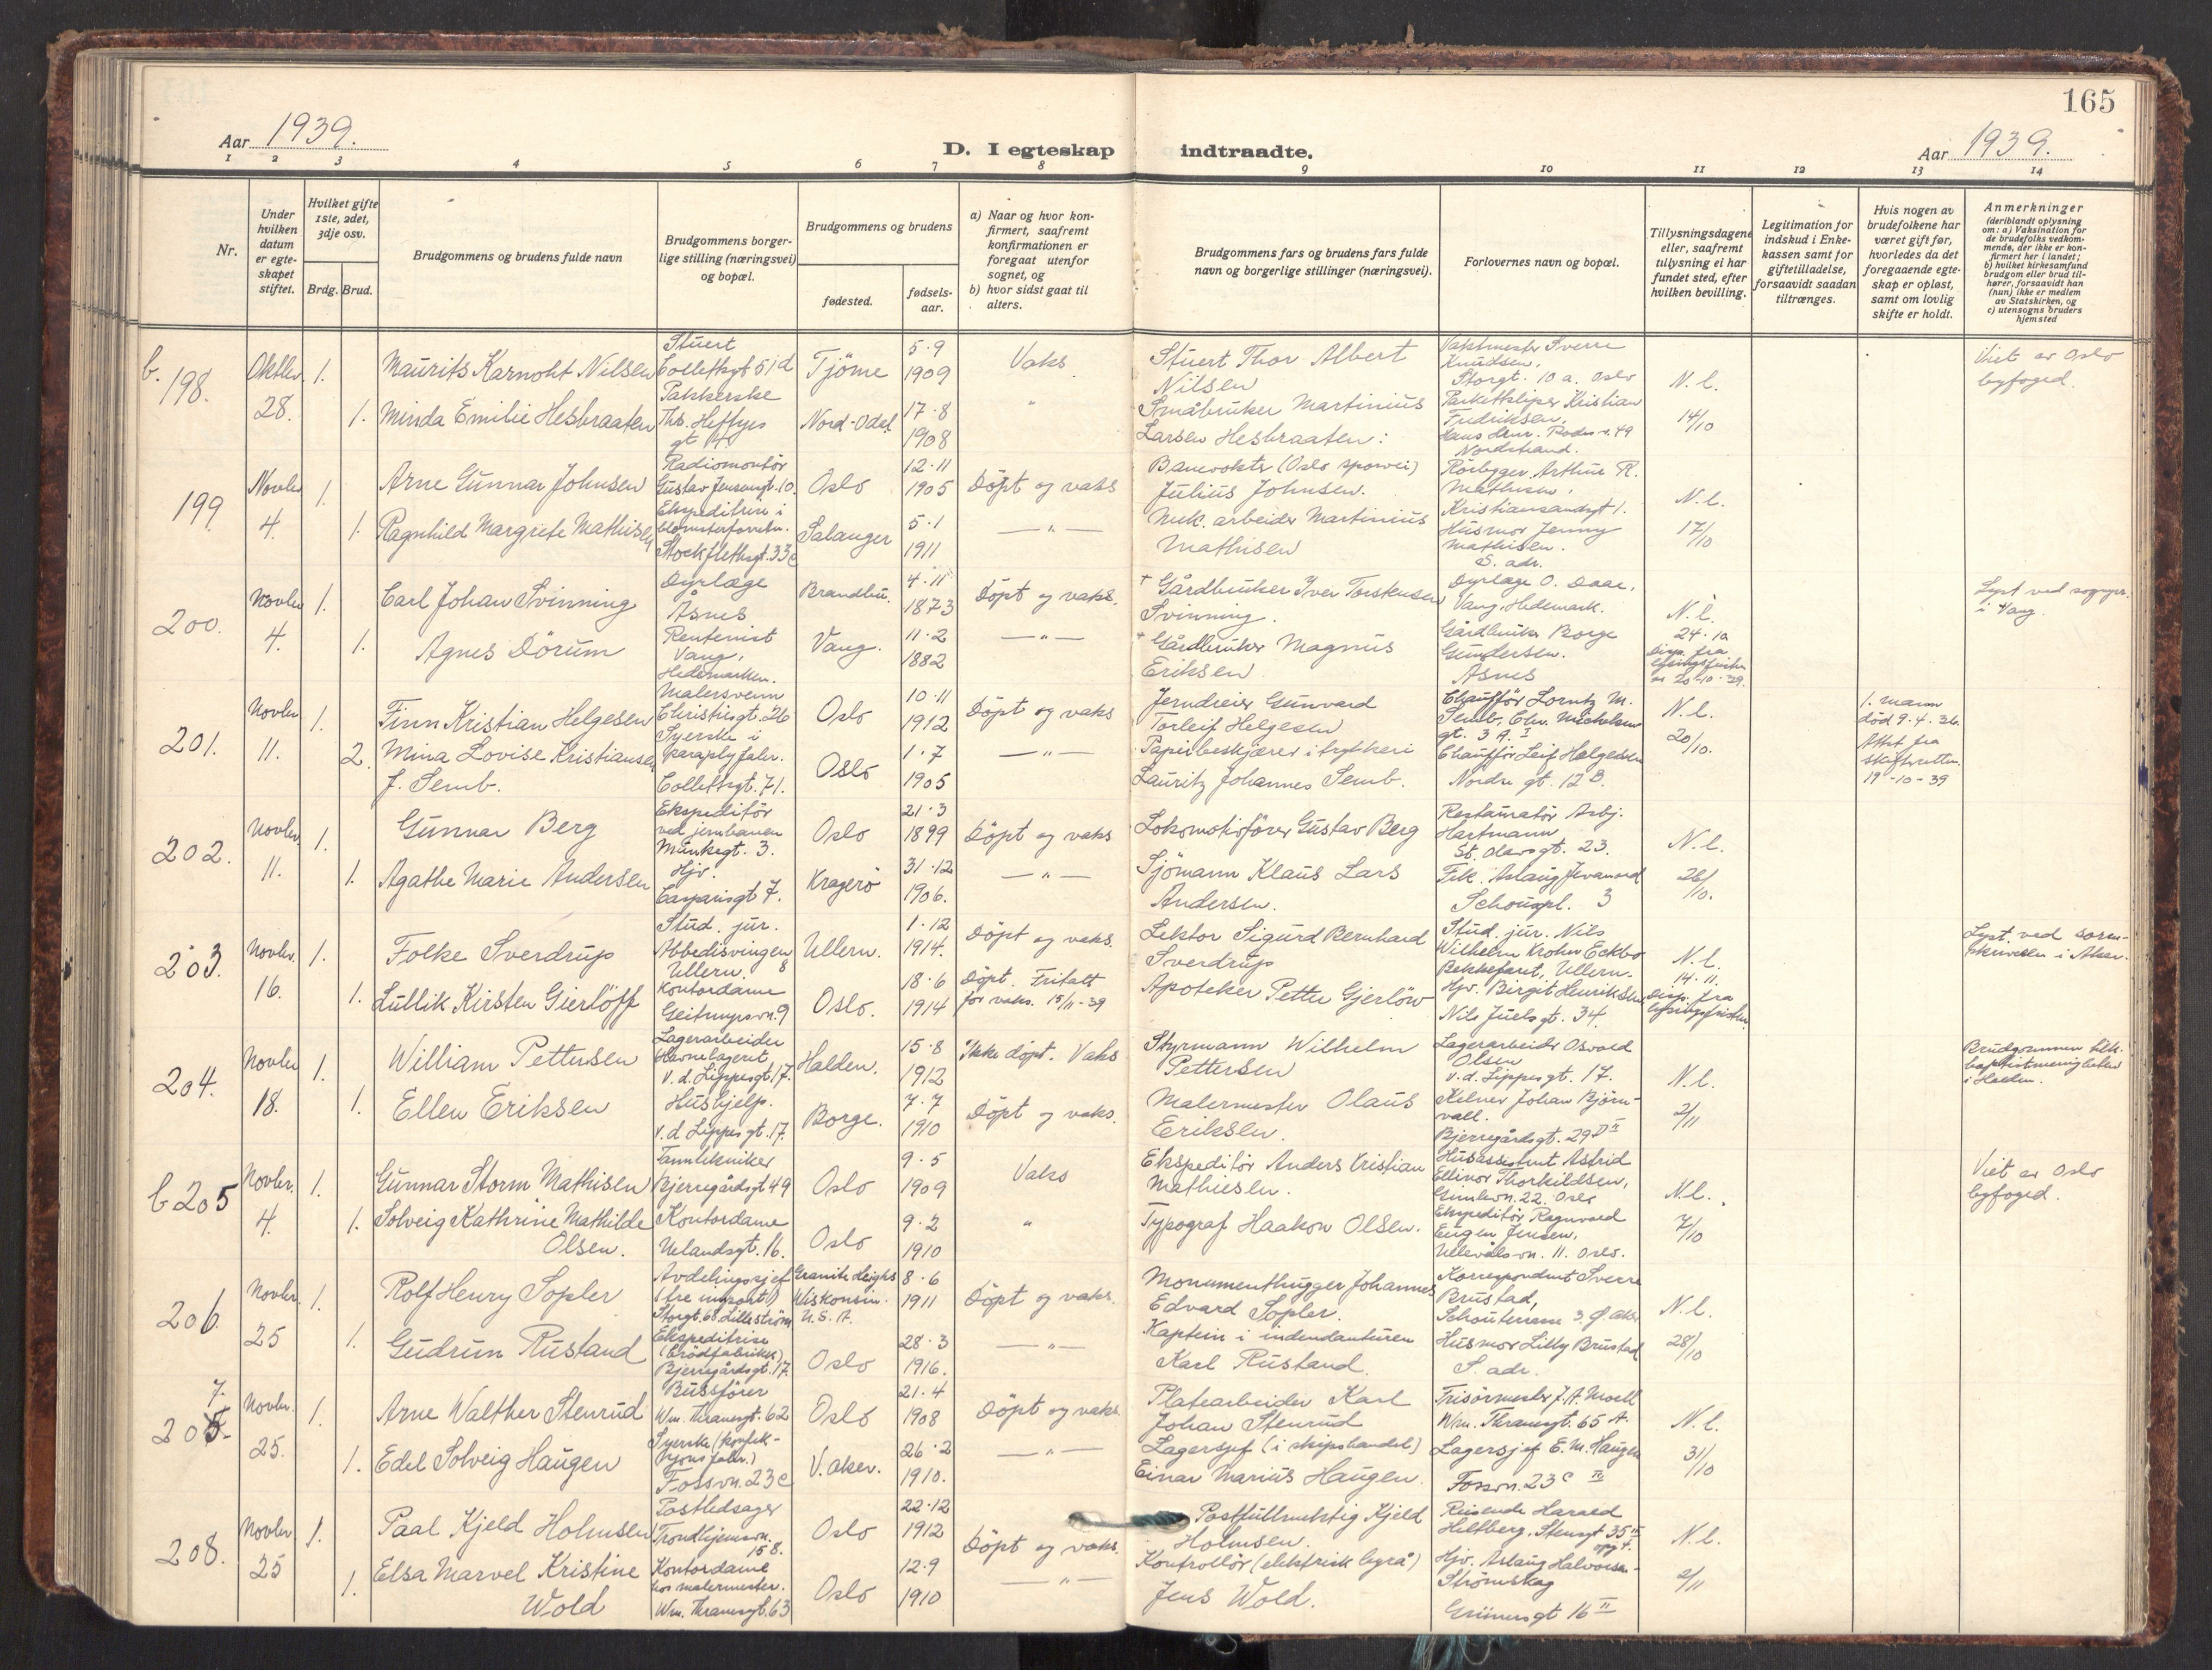 165
Aar 1939.
D. I egteskap indtraadte.
Aar 1939.
1 2 3 4 5 6 7 8 9 10 11 12 13 14
Nr.
Under hvilken datum er egteskapet stiftet.
Hvilket gifte 1ste, 2det, 3dje osv.
Brdg. Brud.
Brudgommens og brudens fulde navn
Brudgommens borgerlige stilling (næringsvei) og bopæl.
Brudgommens og brudens
fødested.
fødselsaar.
a) Naar og hvor konfirmert, saafremt konfirmationen er foregaat utenfor sognet, og
b) hvor sidst gaat til alters.
Brudgommens fars og brudens fars fulde navn og borgerlige stillinger (næringsvei).
Forlovernes navn og bopæl.
Tillysningsdagene eller, saafremt tillysning ei har fundet sted, efter hvilken bevilling.
Legitimation for indskud i Enkekassen samt for giftetilladelse, forsaavidt saadan tiltrænges.
Hvis nogen av brudefolkene har været gift før, hvorledes da det foregaaende egteskap er opløst, samt om lovlig skifte er holdt.
Anmerkninger
(deriblandt oplysning om: a) Vaksination for de brudefolks vedkommende, der ikke er konfirmert her i landet; b) hvilket kirkesamfund brudgom eller brud tilhører, forsaavidt han (hun) ikke er medlem av Statskirken, og c) utensogns bruders hjemsted
b. 198. Oktbr 28. 1.
Maurits Karnoht Nilsen
Stuert
Colletts gt 51d
Tjöme
5.9
1909
Vaks
Stuert Thor Albert
Nilsen
Vaktmester Sverre
Knudsen,
Storgt. 10 a. Oslo
N. l.
14/10
Viet av Oslo
byfoged.
1. Minda Emilie Hesbraaten
Pakkerske
Ths. Heftyes
gt
Nord-Odal
17.8
1908
"
Småbruker Martinius
Larsen Hesbraaten:
Kristian
Fredriksen,
Nordstrand.
199 Novbr 4. 1.
Arne Gunnar Johnsen
Radiomontör
Gustav Jensensgt. 10.
Oslo
12.11
1905
Döpt og vaks
Banevokter (Oslo sporvei)
Julius Johnsen.
Rörlegger Arthur R.
Mathisen,
Kristiansandsgt 1.
N. l.
17/10
1. Ragnhild Margrete Mathisen
Ekspeditrise i
blomsterforretn.
Stockflethsgt. 33c
Salangen
5.1
1911
— " —
Mek. arbeider Martinius
Mathisen
Husmor Jenny
Mathisen.
S. adr.
200. Novbr 4. 1.
Carl Johan Svinning
Dyrlæge
Åsnes
Brandbu.
4.11
1873
Döpt og vaks.
+ Gårdbruker Iver Torstensen
Svinning.
Dyrlæge O. Daae,
Vang, Hedemark.
N. l.
24.10
Disp. fra
lysingsfristen
av 20-10-39.
Lyst ved sognepr.
i Vang.
1. Agnes Dörum
Rentenist
Vang,
Hedemarken.
Vang.
11.2
1882
— " —
+ Gårdbruker Magnus
Eriksen
Gårdbruker Borge
Gundersen.
Åsnes
201. Novbr 11. 1.
Finn Kristian Helgesen
Malersvenn
Christiesgt. 26
Oslo
10.11
1912
Döpt og vaks
Jerndreier Gunvard
Torleif Helgesen
Chauffør Lorntz M.
Semb, Chr. Michelsens
gt. 3 A. I
N. l.
20/10.
1. mann
död 9.4.36.
Attst fra
skifteretten.
19-10-39
2. Mina Lovise Kristiansen
f. Semb.
Syerske i
paraplyfabr.
Collettsgt. 71.
Oslo
1.7
1905
— " —
Papirbeskjærer i trykkeri
Lauritz Johannes Semb.
Chauffør Leif Helgesen
Nordre gt. 12 B.
202. Novbr. 11. 1.
Gunnar Berg
Ekspeditör
ved jernbanen
Munkegt. 3.
Oslo
21.3
1899
Döpt og vaks
Lokomotivförer Gustav Berg
Restauratør Asbj.
Hartmann
St. Olavsgt. 23.
N. l.
26/10.
1. Agathe Marie Andersen
Hjv.
Casparisgt 7.
Kragerö
31.12
1906.
— " —
Sjömann Klaus Lars
Andersen.
Frk. Aslaug Jevanord
Schouspl. 3
203. Novbr. 16. 1.
Folke Sverdrup
Stud. jur.
Abbedisvingen
8
Ullern.
Ullern.
1.12
1914.
Döpt og vaks.
Lektor Sigurd Bernhard
Sverdrup
Stud. jur. Nils
Wilhelm Krohn Eckbo
Bekkefaret, Ullern.
N. l.
14.11.
Disp. fra
lysingsfristen
Lyst. ved soren-
skriveren i Aker.
1. Lullik Kirsten Gierlöff
Kontordame
Geitmyrsvn. 9
Oslo.
18.6
1914
Döpt. Fritatt
for vaks. 15/11-39
Apoteker Petter Gjerlöw
Hjv. Birgit Henriksen
Nils Juels gt. 34.
204. Novbr 18. 1.
William Pettersen
Lagerarbeider
Havnelageret
v. d. Lippesgt. 17.
Halden.
15.8
1912
Ikke döpt. Vaks
Styrmann Wilhelm
Pettersen
Lagerarbeider Osvald
Olsen
v. d. Lippesgt. 17.
N. l.
2/11
Brudgommen tilh.
baptistmenigheten
i Halden.
1. Ellen Eriksen
Hushjelp.
v. d Lippesgt. 17.
Borge.
7.7
1910
Döpt og vaks.
Malermester Olaus
Eriksen.
Kelner Johan Bjørn-
vall.
Bjerregårdsgt. 29D II
b 205 Novbr. 4. 1.
Gunnar Storm Mathisen
Tanntekniker
Bjerregårdsgt 49
Oslo
9.5
1909
Vaks
Ekspeditör Anders Kristian
Mathiesen.
Husassistent Astrid
Ellinor Thorkildsen,
Gimlevn. 22. Oslo
N. l.
7/10
Viet av Oslo
byfoged.
1. Solveig Kathrine Mathilde
Olsen.
Kontordame
Uelandsgt. 16.
Oslo
9.2
1910
"
Typograf Haakon Olsen.
Ekspeditör Ragnvald
Eugen Jensen,
Ullevålsvn. 11. Oslo.
206 Novbr. 25 1.
Rolf Henry Sopler
Avdelingssjef
(tre import)
Storgt. 68 Lilleström
Granite Heights
Wiskonsin.
U. S. A.
8.6
1911
Döpt og vaks.
Monumenthugger Johannes
Edvard Sopler.
Korrespondent Sverre
Brustad,
Schouterrasse 3.
N. l.
28/10
1. Gudrun Rustand
Ekspeditrise
(brödfabrikk)
Bjerregårdsgt. 17.
Oslo
28.3
1916.
— " —
Kaptein i indendanturen
Karl Rustand.
Husmor Lilly Brustad
S. adr.
7.
205 Novbr. 25. 1.
Arne Walther Stenrud
Bussförer
Wm. Thranesgt. 62
Oslo
21.4
1908
Döpt og vaks.
Platearbeider Karl
Johan Stenrud
Frisörmester J. A. Moell
Wm. Thranesgt. 65 A.
N. l.
31/10
1. Edel Solveig Haugen
Syerske (konfek-
sjonsfabr.)
Fossvn. 23 c
V. Aker.
26.2
1910.
— " —
Lagersjef (i skipshandel)
Einar Marius Haugen.
Lagersjef E. M. Haugen
Fossvn. 23 c IV
208. Novbr 25 1.
Paal Kjeld Holmsen
Postledsager
Trondhjemsvn.
158.
Oslo
22.12
1912
Döpt og vaks.
Postfullmektig Kjeld
Holmsen.
Reisende Harald
Heltberg, Stensgt 35 III
opg 4.
N. l.
2/11
1. Elsa Marvel Kristine
Wold
Kontordame
hos malermester.
Wm. Thranesgt. 63
Oslo
12.9
1910
— " —
Kontrollör (elektrisk byrå)
Jens Wold.
Hjv. Aslaug Halvorsen-
Strömskag
Grünersgt 16 II